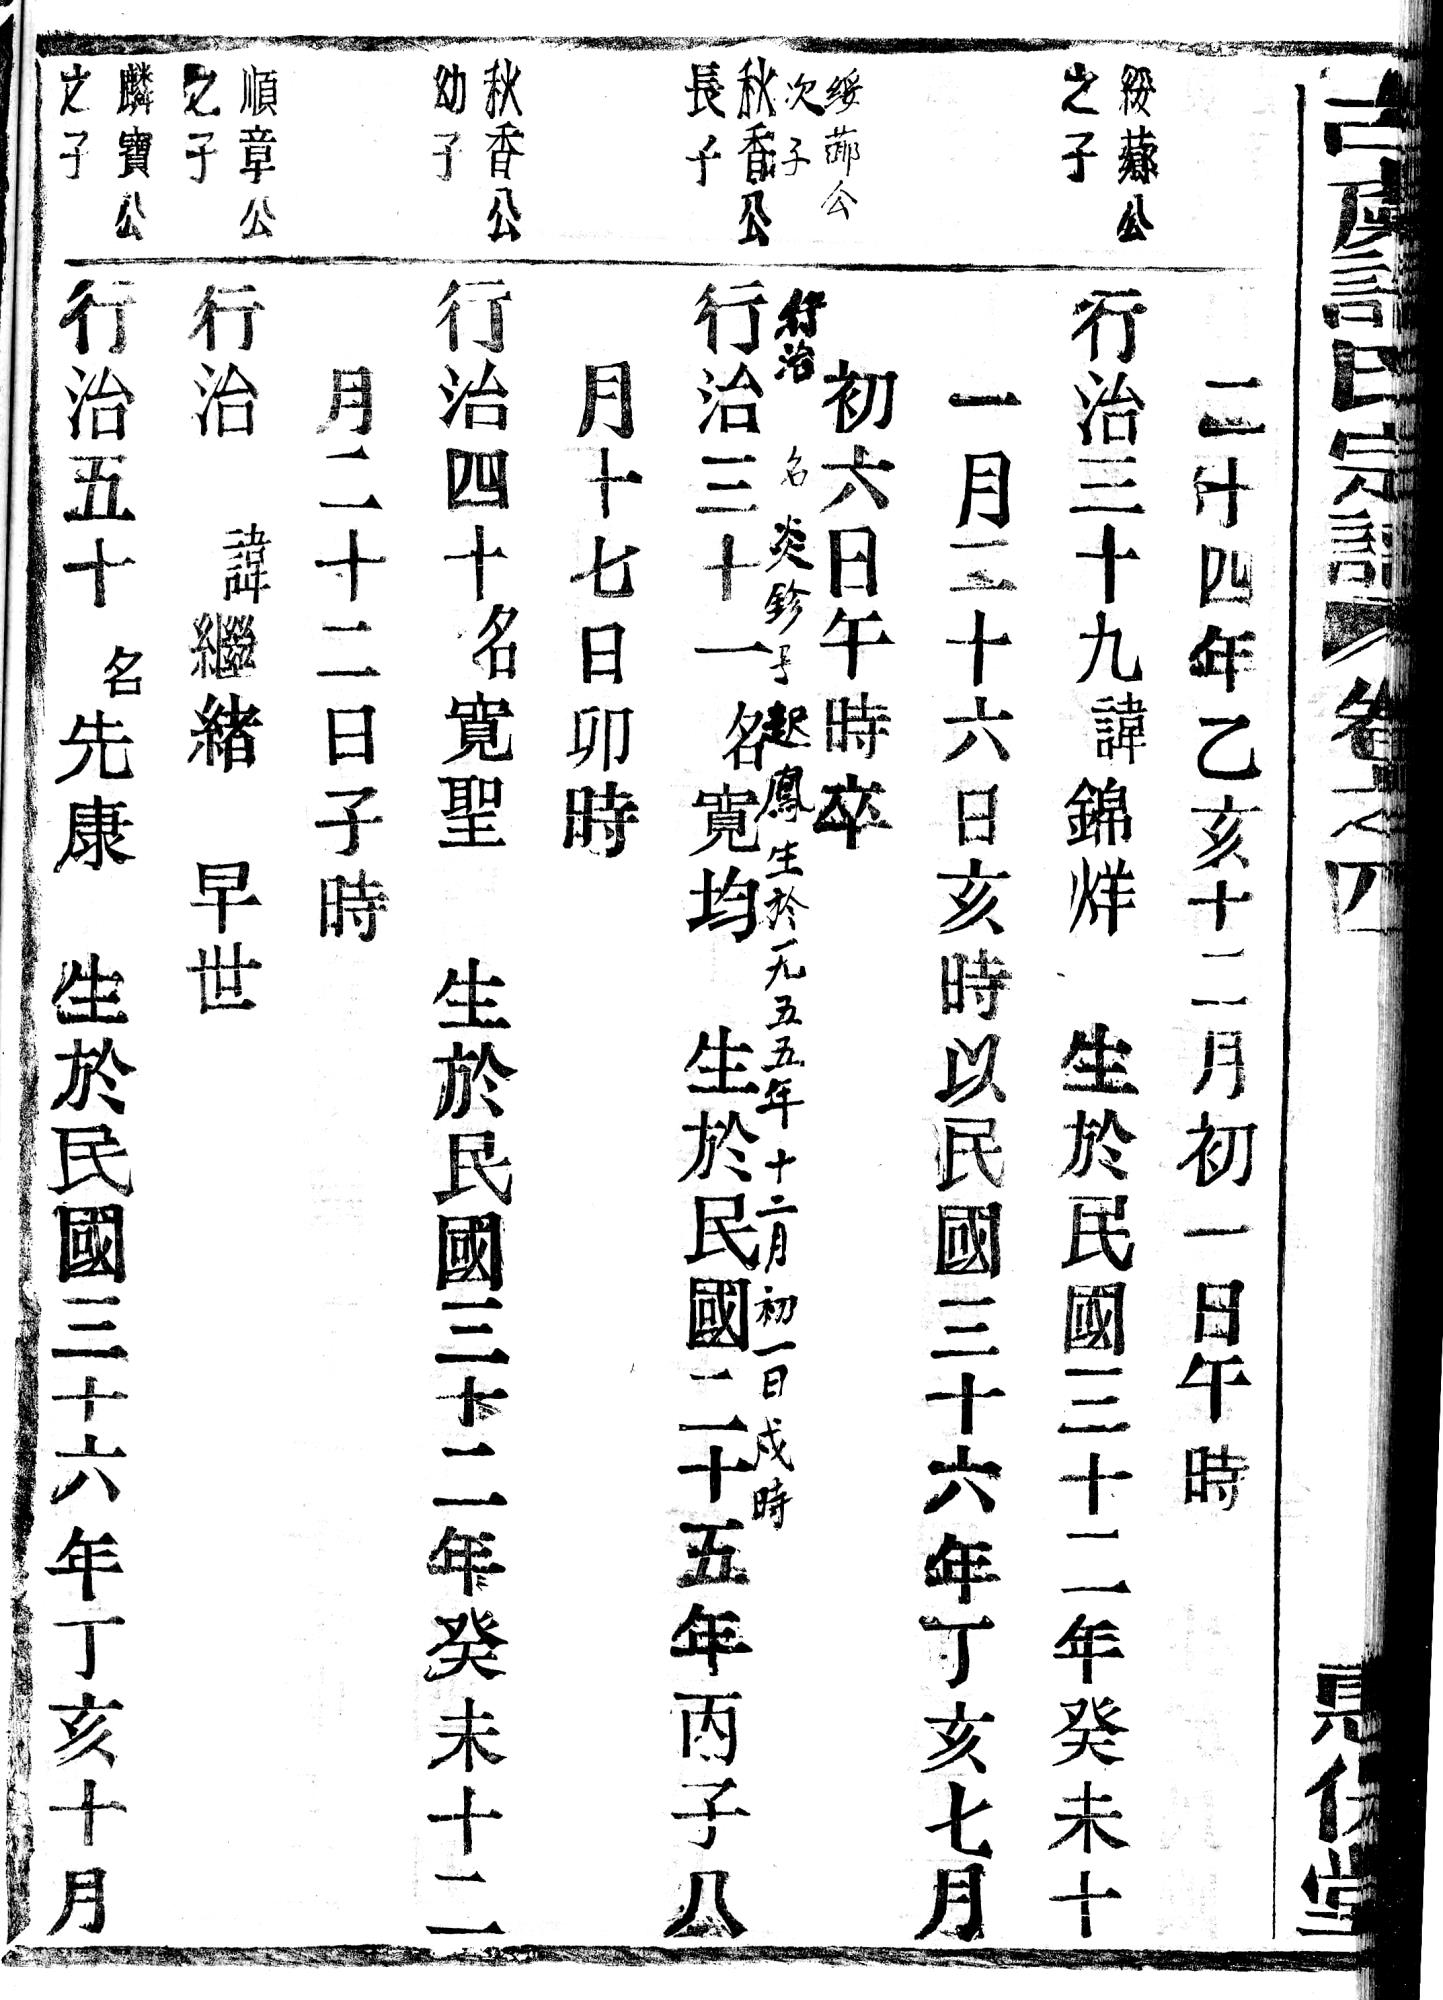 宗譜
卷之四
堂
二十四年乙亥十二月初一日午時
公
之子
行治三十九諱錦烊 生於民國三十二年癸未十
一月二十六日亥時以民國三十六年丁亥七月
初六日午時卒
公
次子
行治 名炎鉁 起鳳生於一九五五年十二月初一日戌時
秋香公
長子
行治三十一名寬均 生於民國二十五年丙子八
月十七日卯時
秋香公
幼子
行治四十名寬聖 生於民國三十二年癸未十二
月二十二日子時
順章公
之子
行治 諱繼緒 早世
麟寶公
之子
行治五十名先康 生於民國三十六年丁亥十月